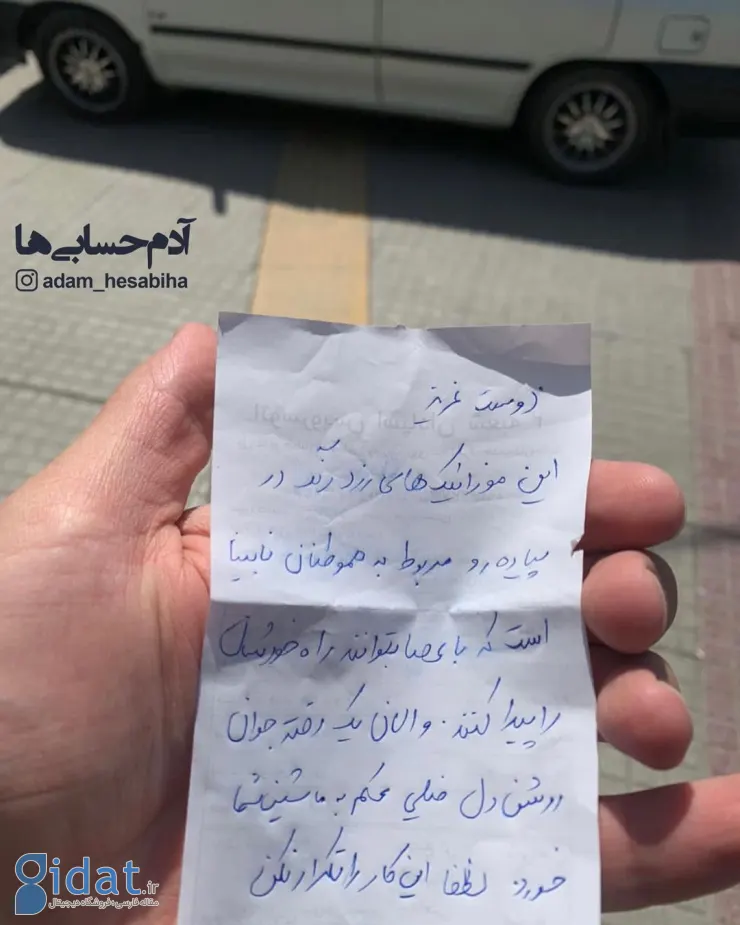 آدم‌حسابی‌ها
adam_hesabiha
دوست عزیز
این موزائیک های زرد رنگ در
پیاده رو مربوط به هموطنان نابینا
است که با عصا بتوانند راه خودشان
را پیدا کنند. والان یک دختر جوان
روشن دل خیلی محکم به ماشین شما
خورد. لطفا این کار را تکرار نکن
gidat.ir
مقاله فارسی و فروشگاه دیجیتال